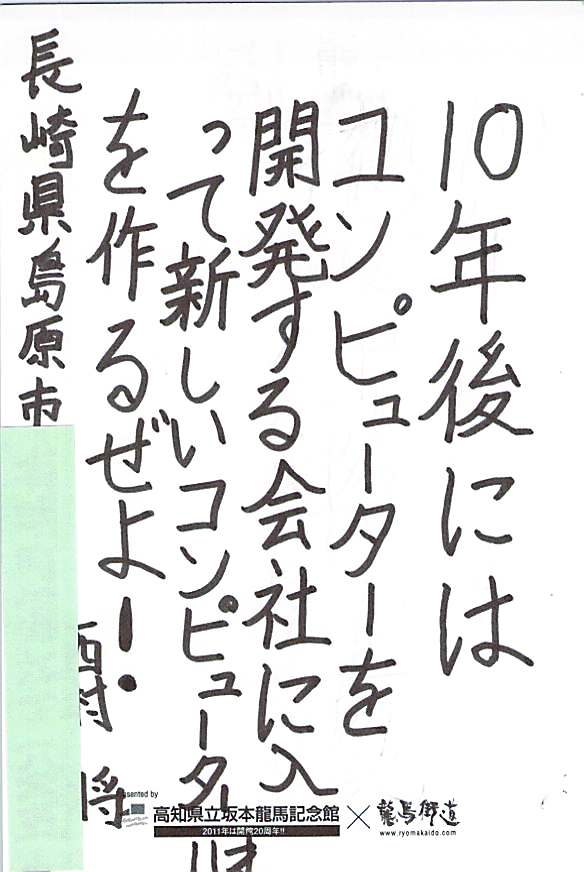 10年後には
コンピューターを
開発する会社に入
って新しいコンピュータ
を作るぜよ!
長崎県島原市
Presented by
高知県立坂本龍馬記念館×龍馬街道
2011年は開館20周年!!
www.ryomakaido.com